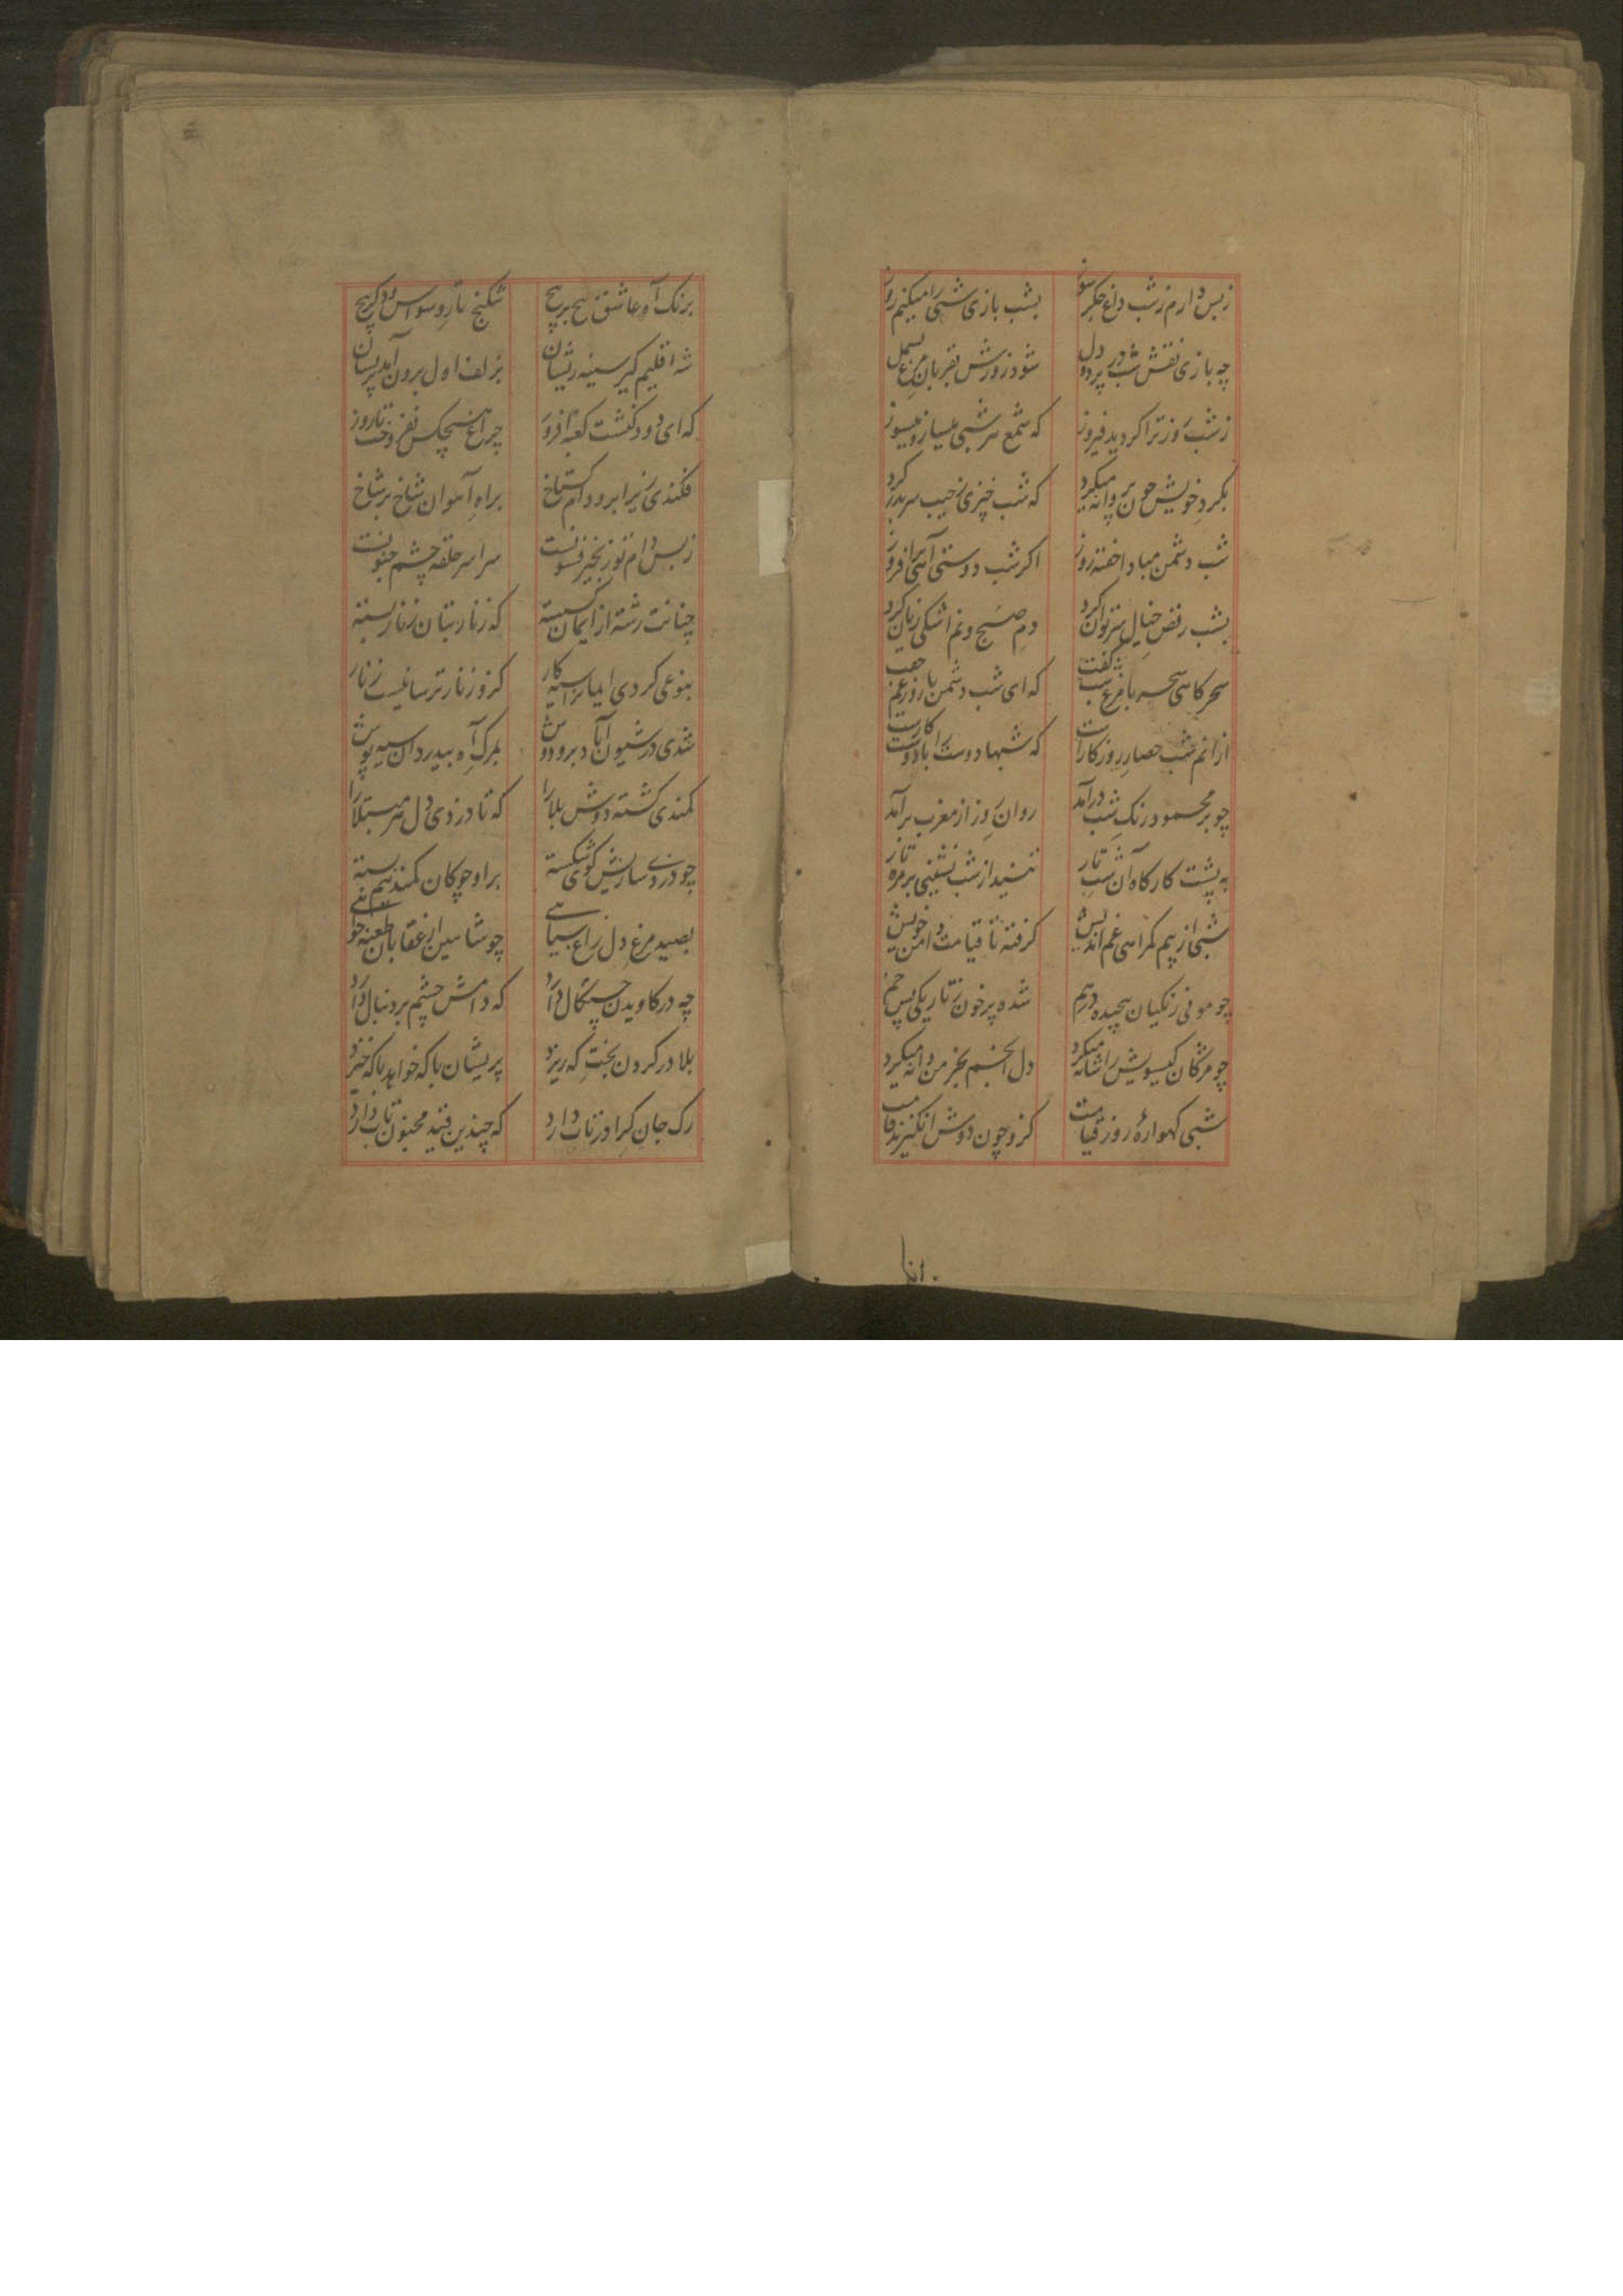 زبس دارم ز شب داغ جگر سوز بشب بازی شبی را میکنم روز
چه بازی نقش شب در پرده دل شود روزش بقربان مرغ بسمل
ز شب روز ترا کردید فیروز که شمع هر شبی میساز و میسوز
بکرد خویش چون پروانه میکرد که شب خیزی ز جیب سر بدر کرد
شب دشمن مباد اخفته روز اکر شب دوستی آهی برافروز
بشب رقص خیال سر توان کرد دم صبح و نم اشکی زیان کرد
سحر کاهی سحر با مرغ شب کفت که ای شب دشمن با روز غم جفت
از انم شب حصار روزکار است که شبها دوست را با دوست کار است
چو بر محمود رنک شب درآمد روان روز از مغرب برآمد
به پشت کارکاه آن شب تار تنید از شب نشینی بر مژه تار
شبی از بیم کمراهی غم اندیش کرفته تا قیامت دامن خویش
چو موئی زنکیان پیچیده درهم شده پرخون ز تاریکی پس خم
چو مژکان کیسویش را شانه میکرد دل انجم بخرمن دانه میکرد
شبی کهوارهٔ روز قیامت کزو چون دوش انکیزند قامت
برنک آه عاشق پیچ بر پیچ شکنج تار و سواس و دکر هیچ
شه اقلیم کیر سینه ریشان بزلف اول برون آمد پریشان
که ای دود کنشت کعبه افروز چراغ هیچکس نفروخت تا روز
فکندی زیر ابرو دام کستاخ براه آهوان شاخ بر شاخ
زبس دام تو زنجیر فسونست سراسر حلقه چشم جنونست
چنانت رشته از ایمان کسسته که زنار بتان زنار بسته
بنوعی کردی ایمان را سیه کار کزو زنار ترسا نیست زنار
شدی در شیون آباد بر و دوش بمرک آه بیدردان سیه پوش
کمندی کشته دوش بلا را که تا دزدی دل هر مبتلا را
چو دزدی سازیش کوئی شکسته بر او چوکان کمند نیم بسته
بصید مرغ دل زاغ سیاهی چو شاهین از عقابان طعنه خواهی
چه در کاویدن چنکال دارد که دامش چشم بر دنبال دارد
بلا در کردن بخت که ریزد پریشان با که خواهد با که خیزد
رک جان کرا در تاب دارد که چندین فتنه مجنون تاب دارد